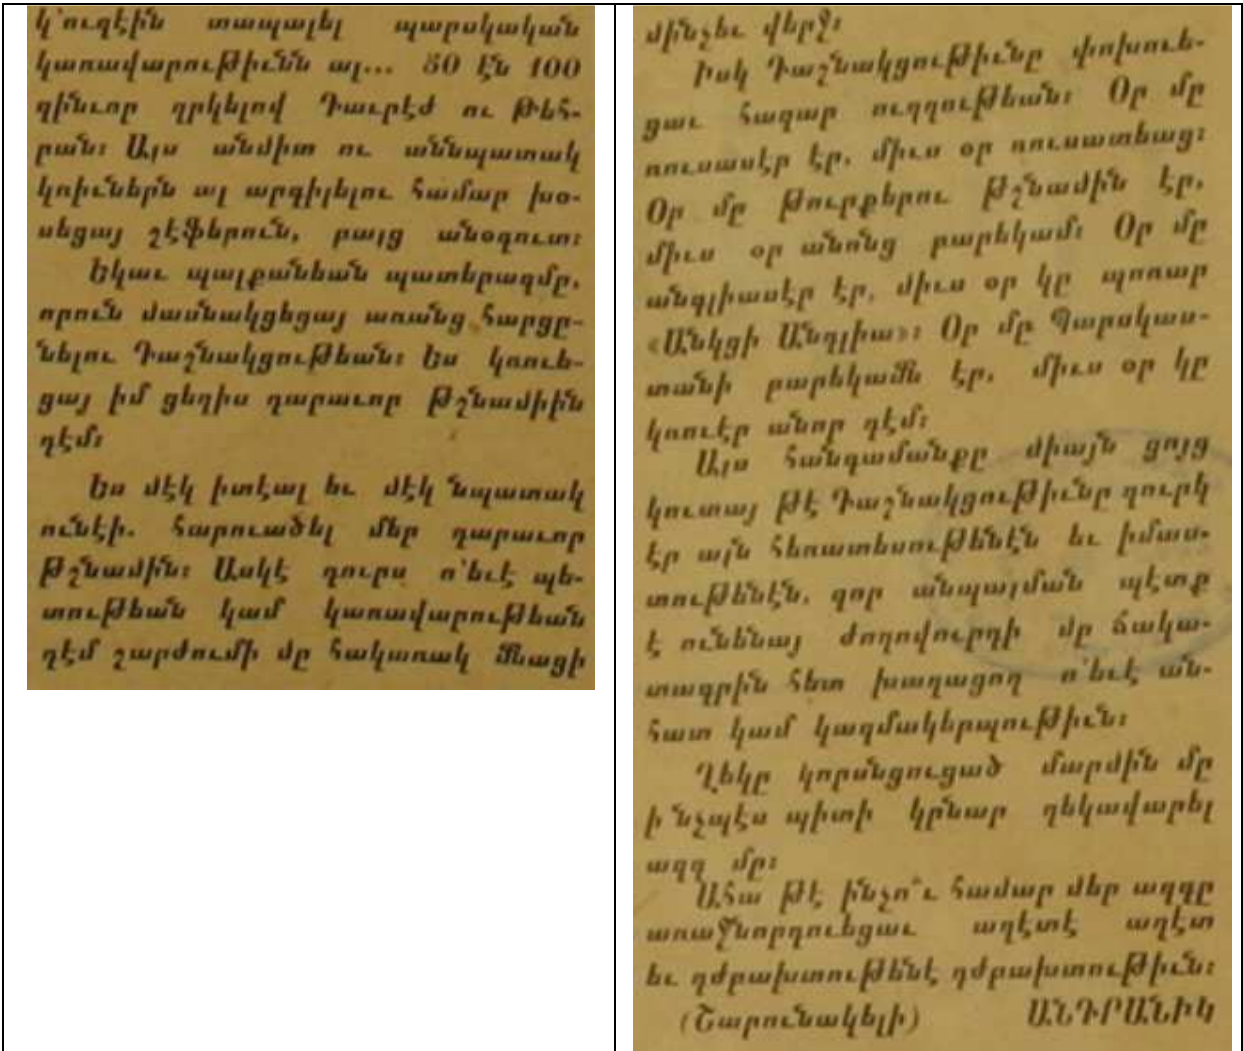 կ՚ուզէին տապալել պարսկական
կառավարութիւնն ալ... 50 էն 100
զինւոր ղրկելով Դաւրէժ ու Թեհ-
րան։ Այս անմիտ ու աննպատակ
կռիւներն ալ արգիլելու համար խօ-
սեցայ շէֆերուն, բայց անօգուտ։
Եկաւ պալքանեան պատերազմը,
որուն մասնակցեցայ առանց հարցը-
նելու Դաշնակցութեան։ Ես կռուե-
ցայ իմ ցեղիս դարաւոր թշնամիին
դէմ։
Ես մէկ իտէալ եւ մէկ նպատակ
ունէի. հարուածել մեր դարաւոր
թշնամին։ Ասկէ դուրս ո՛եւէ պե-
տութեան կամ կառավարութեան
դէմ շարժումի մը հակառակ մնացի
մինչեւ վերջ։
Իսկ Դաշնակցութիւնը փոխուե-
ցաւ հազար ուղղութեան։ Օր մը
ռուսասէր էր, միւս օր ռուսատեաց։
Օր մը Թուրքերու թշնամին էր,
միւս օր անոնց բարեկամ։ Օր մը
անգլիասէր էր, միւս օր կը պոռար
«Անկցի Անգլիա»։ Օր մը Պարսկաս-
տանի բարեկամն էր, միւս օր կը
կռուէր անոր դէմ։
Այս հանգամանքը միայն ցոյց
կուտայ թէ Դաշնակցութիւնը զուրկ
էր այն հեռատեսութենէն եւ իմաս-
տութենէն, զոր անպայման պէտք
է ունենայ ժողովուրդի մը ճակա-
տագրին հետ խաղացող ո՛եւէ ան-
հատ կամ կազմակերպութիւն։
Ղեկը կորսնցուցած մարմին մը
ի՞նչպէս պիտի կրնար ղեկավարել
ազգ մը։
Ահա թէ ինչո՞ւ համար մեր ազգը
առաջնորդուեցաւ աղէտէ աղէտ
եւ դժբախտութենէ դժբախտութիւն։
(Շարունակելի) ԱՆԴՐԱՆԻԿ